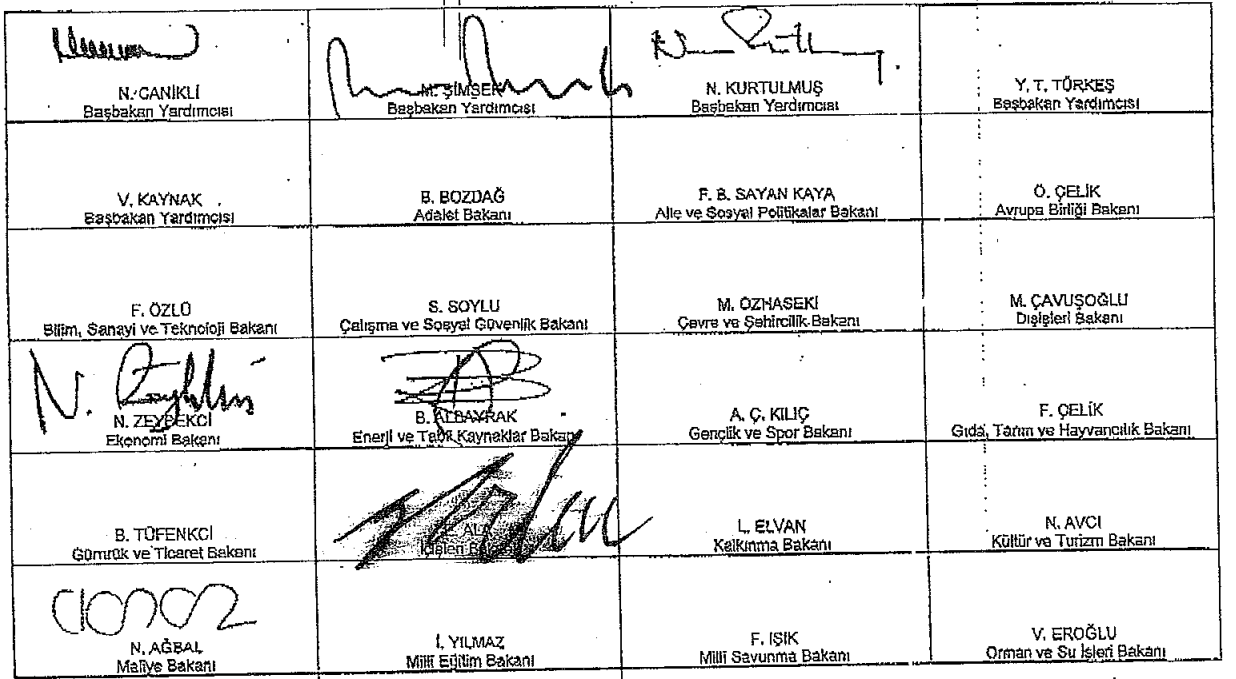 N. CANİKLİ
Başbakan Yardımcısı
M. ŞİMŞEK
Başbakan Yardımcısı
N. KURTULMUŞ
Başbakan Yardımcısı
Y. T. TÜRKEŞ
Başbakan Yardımcısı
V. KAYNAK
Başbakan Yardımcısı
B. BOZDAĞ
Adalet Bakanı
F. B. SAYAN KAYA
Aile ve Sosyal Politikalar Bakanı
Ö. ÇELİK
Avrupa Birliği Bakanı
F. ÖZLÜ
Bilim, Sanayi ve Teknoloji Bakanı
S. SOYLU
Çalışma ve Sosyal Güvenlik Bakanı
M. ÖZHASEKİ
Çevre ve Şehircilik Bakanı
M. ÇAVUŞOĞLU
Dışişleri Bakanı
N. ZEYBEKCİ
Ekonomi Bakanı
B. ALBAYRAK
Enerji ve Tabii Kaynaklar Bakanı
A. Ç. KILIÇ
Gençlik ve Spor Bakanı
F. ÇELİK
Gıda, Tarım ve Hayvancılık Bakanı
B. TÜFENKCİ
Gümrük ve Ticaret Bakanı
ALA
İçişleri
L. ELVAN
Kalkınma Bakanı
N. AVCI
Kültür ve Turizm Bakanı
N. AĞBAL
Maliye Bakanı
İ. YILMAZ
Milli Eğitim Bakanı
F. IŞIK
Milli Savunma Bakanı
V. EROĞLU
Orman ve Su İşleri Bakanı